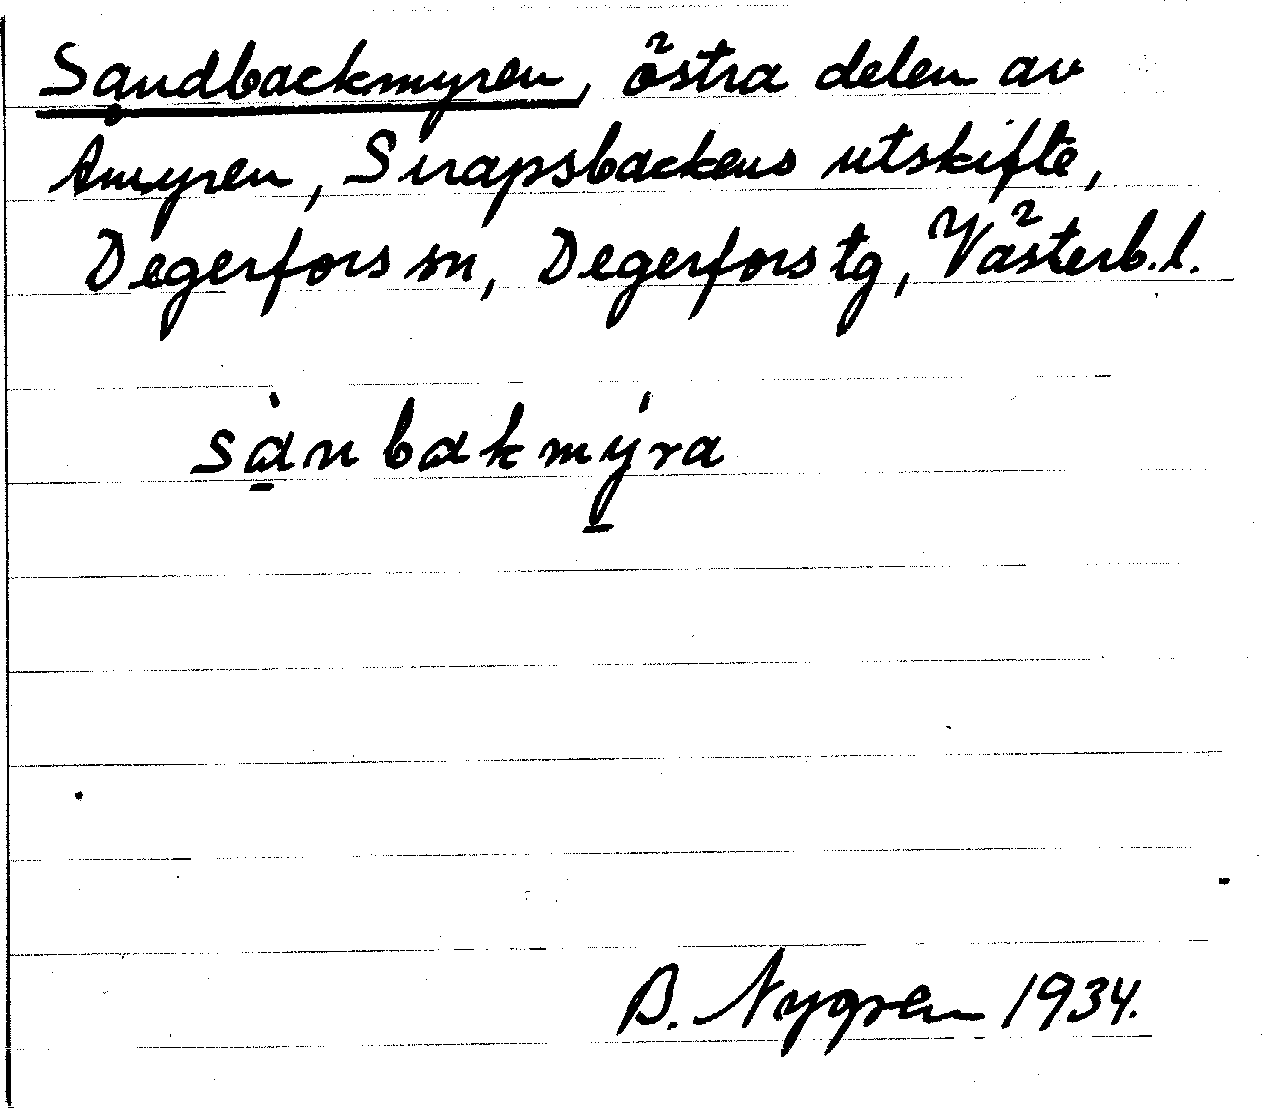 Sandbackmyren, östra delen av
Åmyren, Sirapsbackens utskifte,
Degerfors sn, Degerfors tg, Västerb.l.
sà̱nbakmý̱ra
B. Nygren 1934.